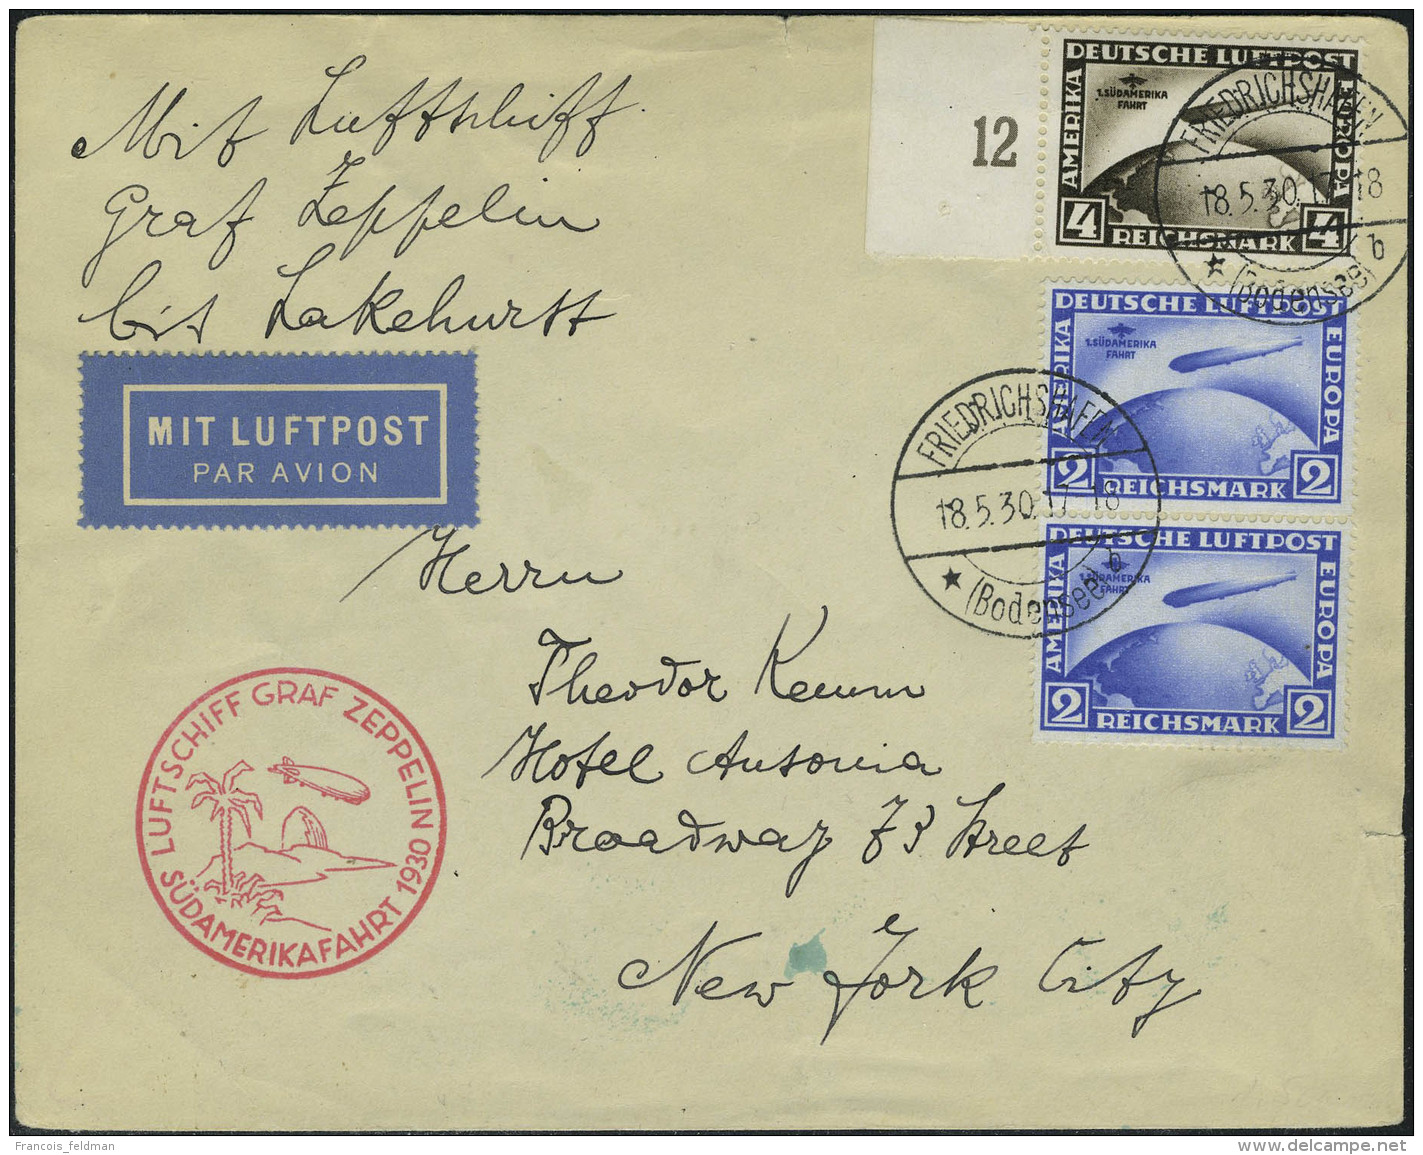 Mit Luftschiff
Graf Zeppelin
bis Lakehurst
MIT LUFTPOST
PAR AVION
12
DEUTSCHE LUFTPOST
AMERIKA
EUROPA
1. SÜDAMERIKA
FAHRT
4 REICHSMARK 4
FRIEDRICHSHAFEN
18.5.30.17-18
b
(Bodensee)
DEUTSCHE LUFTPOST
AMERIKA
EUROPA
1. SÜDAMERIKA
FAHRT
2 REICHSMARK 2
FRIEDRICHSHAFEN
18.5.30.17-18
b
(Bodensee)
DEUTSCHE LUFTPOST
AMERIKA
EUROPA
1. SÜDAMERIKA
FAHRT
2 REICHSMARK 2
Herrn
Theodor
Hotel Ansonia
Broadway 73 Street
New York City
LUFTSCHIFF GRAF ZEPPELIN
SÜDAMERIKAFAHRT 1930
Francois_feldman
www.delcampe.net